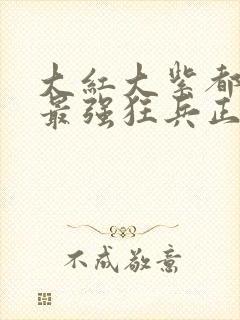 大红大紫都
最强狂兵正
不成敬意